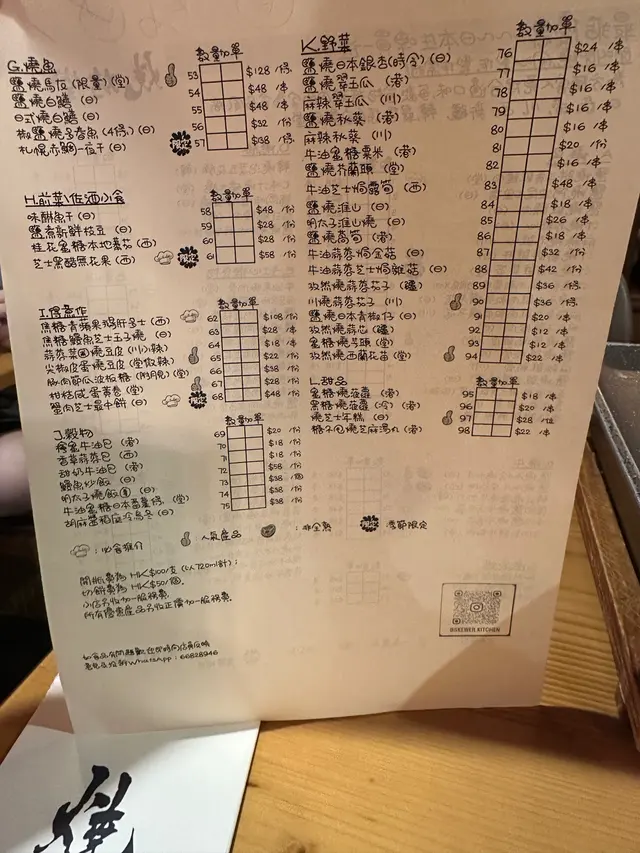 G.燒魚 數量加單
鹽燒馬友 (限量) (堂) 53 $128 /條
鹽燒白鱔 (日) 54 $48 /串
日式燒白鱔 (日) 55 $48 /串
椒鹽燒多春魚 (4條) (日) 56 $32 /份
札幌赤鯛一夜干 (日) 限定 57 $38 /條
H.前菜\佐酒小食 數量加單
味醂魚干 (日) 58 $48 /份
鹽煮新鮮枝豆 (日) 59 $28 /份
桂花蜜糖本地番茄 (西) 60 $28 /份
芝士黑醋無花果 (西) 限定 61 $58 /份
I.慢煮作 數量加單
焦糖青蘋果鵝肝多士 (西) 62 $108 /份
焦糖鰻魚芝士玉子燒 (日) 63 $28 /串
蒜蓉菜圃燒豆皮 (川)(辣) 64 $18 /串
尖椒皮蛋燒豆皮 (堂)(微辣) 65 $22 /串
66 $38 /份
柑桔咸蛋黃卷 (堂) 67 $28 /份
蟹肉芝士最中餅 (日) 限定 68 $48 /份
J.穀物 數量加單
檸蜜牛油包 (港) 69 $20 /份
香草蒜蓉包 (西) 70 $18 /份
甜奶牛油包 (港) 71 $18 /份
鰻魚炒飯 (日) 72 $58 /份
明太子燒飯團 (日) 73 $38 /個
牛油蜜糖日本番薯條 (堂) 74 $38 /份
胡麻醬稻庭冷烏冬 (日) 75 $38 /份
K.野菜 數量加單
鹽燒日本銀杏(時令) (日) 76 $24 /串
鹽燒翠玉瓜 (港) 77 $16 /串
麻辣翠玉瓜 (川) 78 $16 /串
鹽燒秋葵 (港) 79 $16 /串
麻辣秋葵 (川) 80 $16 /串
牛油蜜糖粟米 (港) 81 $20 /份
鹽燒芥蘭頭 (堂) 82 $16 /串
牛油芝士焗露筍 (西) 83 $48 /串
鹽燒淮山 (日) 84 $18 /串
明太子淮山燒 (日) 85 $26 /串
鹽燒萵筍 (港) 86 $18 /串
牛油蒜蓉焗金菇 (日) 87 $32 /份
牛油蒜蓉芝士焗雜菇 (日) 88 $42 /份
孜然燒蒜蓉茄子 (疆) 89 $36 /條
川燒蒜蓉茄子 (川) 90 $36 /條
鹽燒日本青椒仔 (日) 91 $20 /串
孜然燒蒜芯 (疆) 92 $12 /串
蜜糖燒芋頭 (堂) 93 $12 /串
孜然燒西蘭花苗 (堂) 94 $22 /串
L.甜品 數量加單
蜜糖燒菠蘿 (港) 95 $18 /串
黑糖燒菠蘿 (冷) (港) 96 $20 /串
燒芝士年糕 (日) 97 $28 /位
糖不甩燒芝麻湯丸 (港) 98 $22 /串
：必食推介 ：人氣產品 ：非全熟 限定 季節限定
開瓶費為 HK$100/支 (以720ml計)；
切餅費為 HK$50/個。
小店另收加一服務費。
所有優惠產品另收正價加一服務費。
如食品有問題歡迎即時向店員反映
意見及投訴WhatsApp：66828946
@SKEWER.KITCHEN
燒